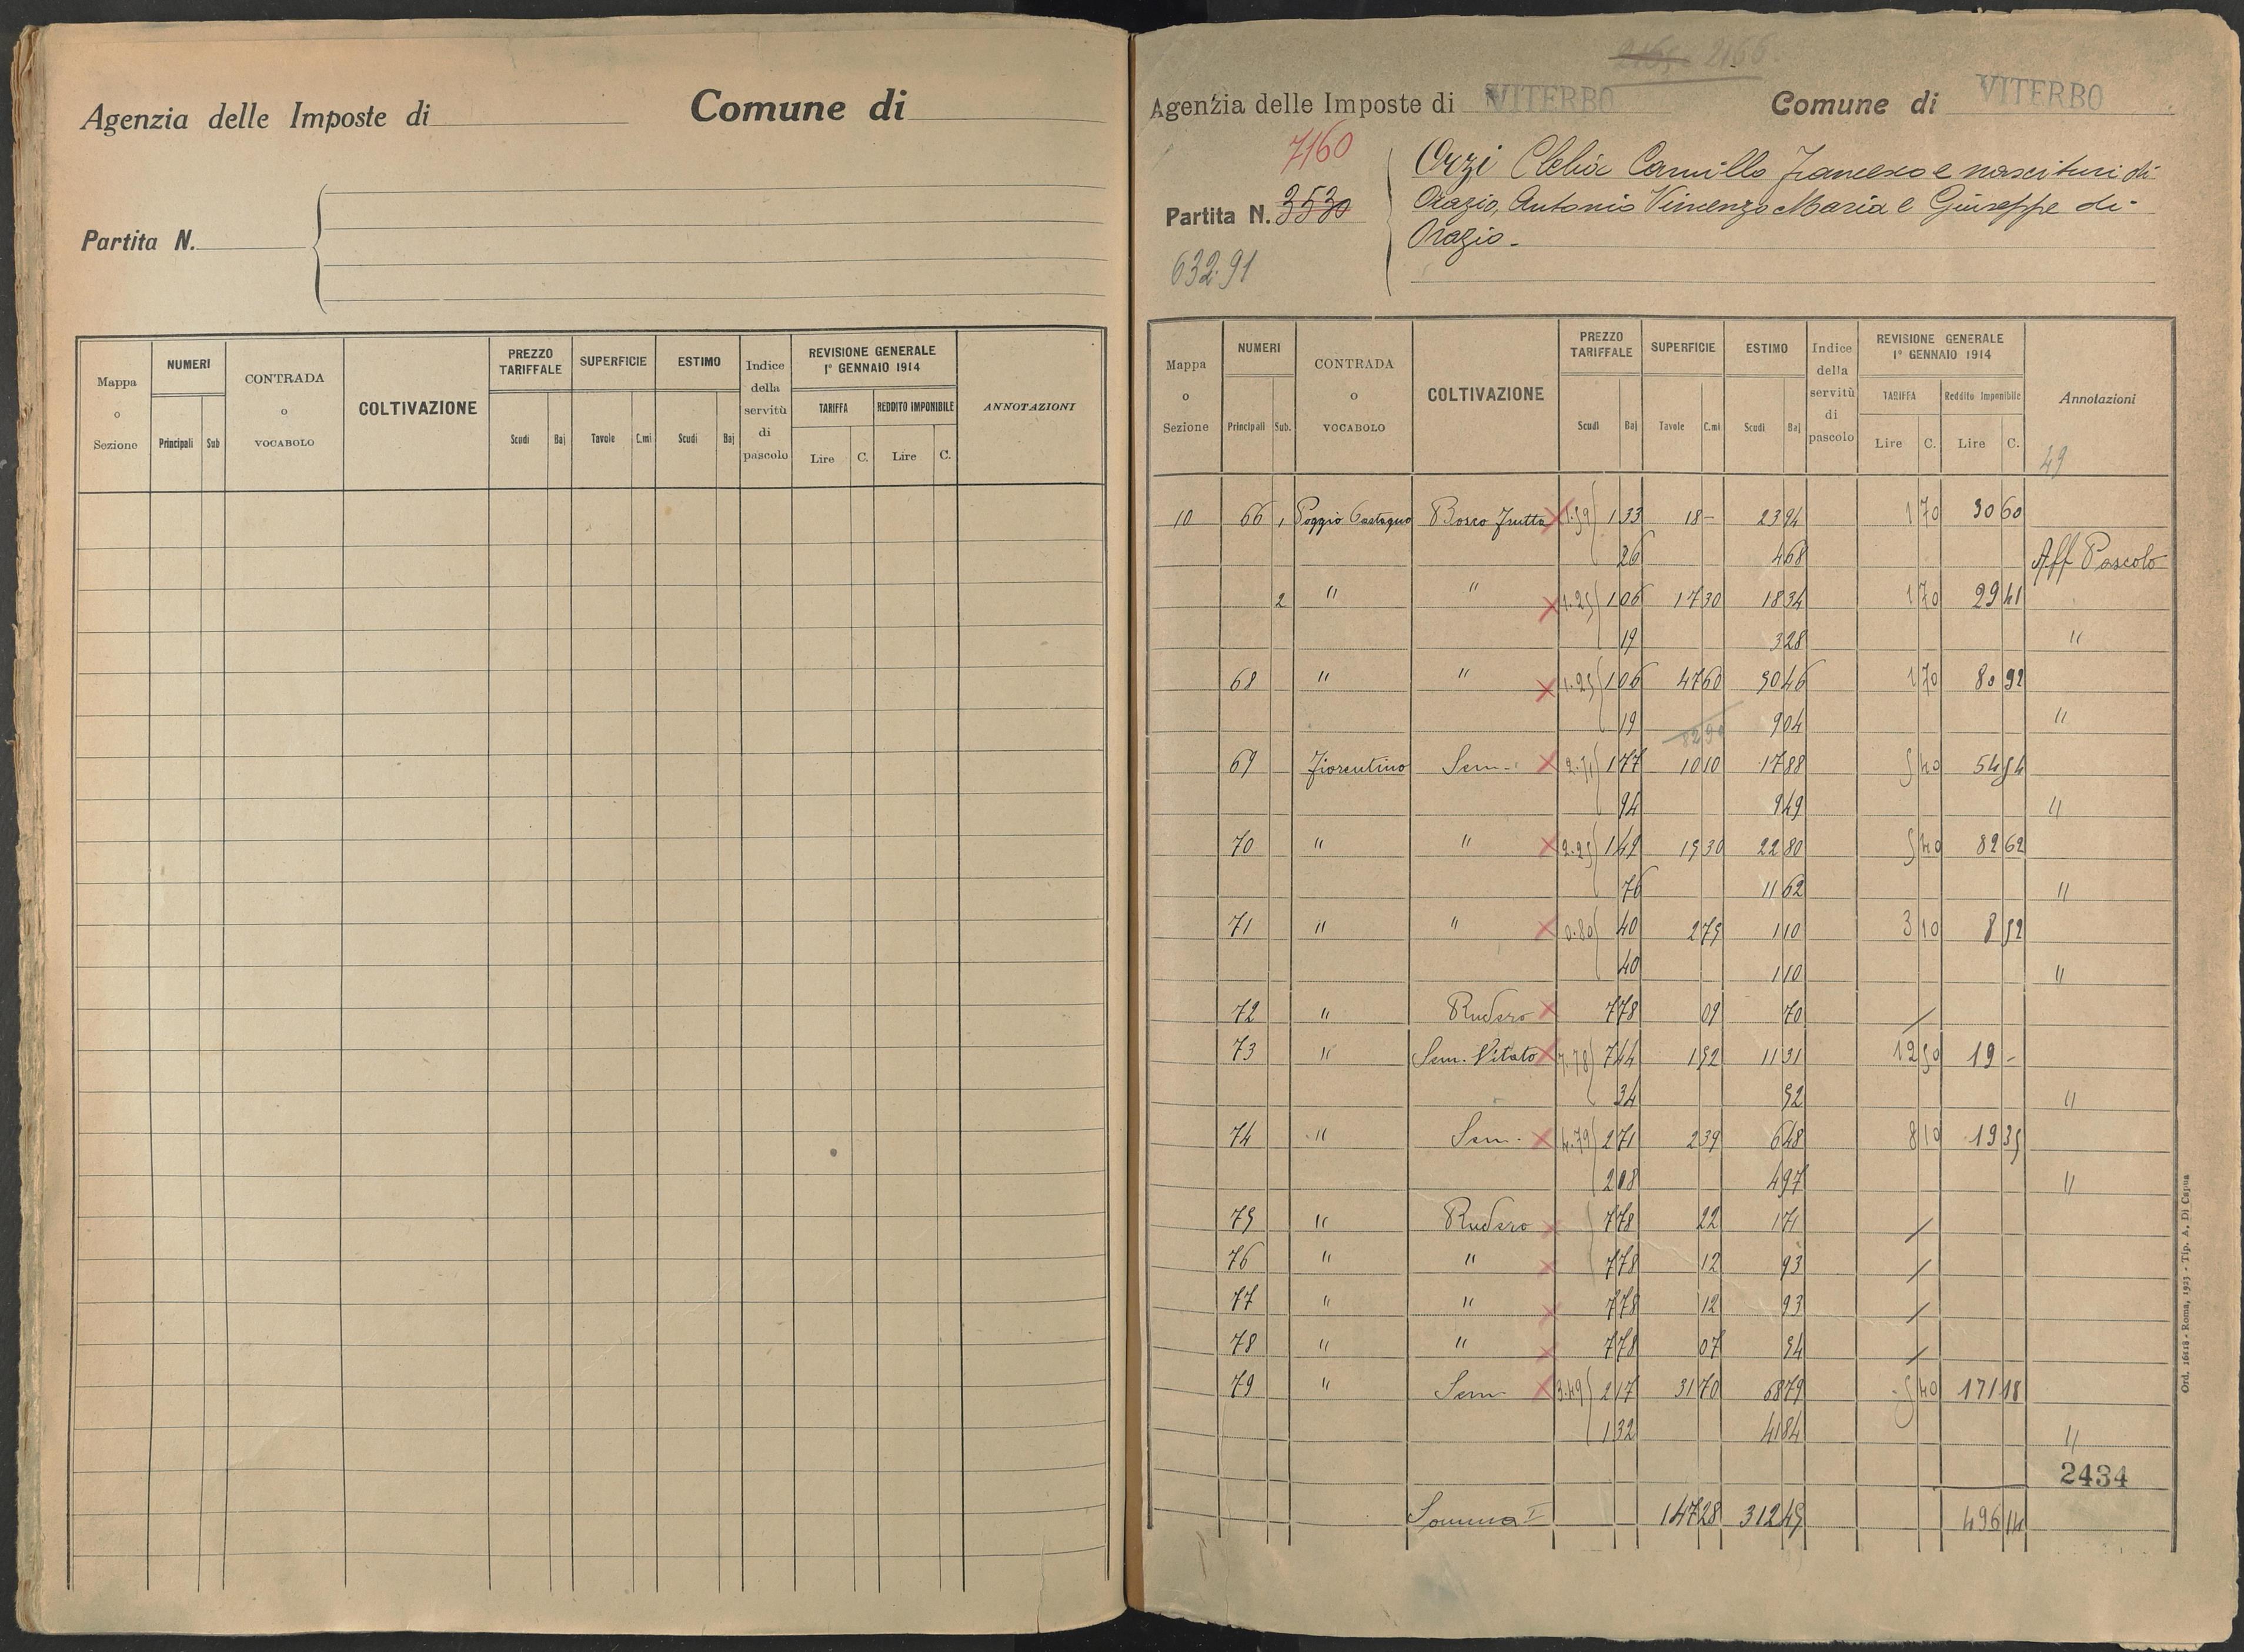 Agenzia delle Imposte di Comune di
Partita N.
Mappa o Sezione NUMERI Principali Sub CONTRADA o VOCABOLO COLTIVAZIONE PREZZO TARIFFALE Scudi Baj SUPERFICIE Tavole C.mi ESTIMO Scudi Baj Indice della servitù di pascolo REVISIONE GENERALE 1° GENNAIO 1914 TARIFFA Lire C. REDDITO IMPONIBILE Lire C. ANNOTAZIONI
2165 2166.
Agenzia delle Imposte di VITERBO Comune di VITERBO
7160
Partita N. 3530
632.91
Orzi Clelia Camillo Francesco e nascituri di
Orazio, Antonio Vincenzo Maria e Giuseppe di
Orazio.
Mappa o Sezione NUMERI Principali Sub. CONTRADA o VOCABOLO COLTIVAZIONE PREZZO TARIFFALE Scudi Baj SUPERFICIE Tavole C.mi ESTIMO Scudi Baj Indice della servitù di pascolo REVISIONE GENERALE 1° GENNAIO 1914 TARIFFA Lire C. Reddito Imponibile Lire C. Annotazioni
49
10 66 1 Poggio Castagno Bosco Frutta X 1.59 1 33 18 - 23 94 1 70 30 60
26 4 68 Aff Pascolo
2 " " X 1.25 1 06 17 30 18 34 1 70 29 41
19 3 28 "
68 " " X 1.25 1 06 47 60 50 46 1 70 80 92
19 9 04 "
82 90
69 Fiorentino Sem. X 2.71 1 77 10 10 17 88 5 40 54 54
94 9 49 "
70 " " X 2.25 1 49 15 30 22 80 5 40 82 62
76 11 62 "
71 " " X 0.80 40 2 75 1 10 3 10 8 52
40 1 10 "
72 " Rudero X 7 78 09 70 /
73 " Sem. Vitato X 7.78 7 44 1 52 11 31 12 50 19 -
34 52 "
74 " Sem. X 4.79 2 71 2 39 6 48 8 10 19 35
2 08 4 97 "
75 " Rudero X 7 78 22 1 71 /
76 " " X 7 78 12 93 /
77 " " X 7 78 12 93 /
78 " " X 7 78 07 54 /
79 " Sem X 3.49 2 17 31 70 68 79 5 40 171 18
1 32 41 84 "
2434
Somma I 147 28 312 45 496 14
Ord. 16118 - Roma, 1923 - Tip. A. Di Capua